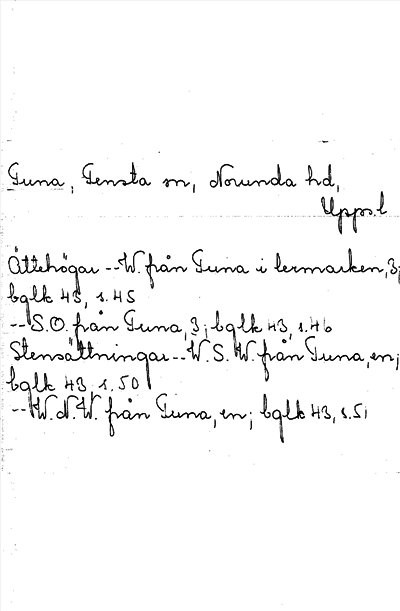 Tuna, Tensta sn, Norunda hd,
Upps.l
Ättehögar -- W. från Tuna i lermarken, 3;
bglk 43, s. 45
-- S.O. från Tuna, 3; bglk 43, s. 46
Stensättningar -- W.S.W. från Tuna, en;
bglk 43, s. 50
-- W.N.W. från Tuna, en; bglk 43, s. 51